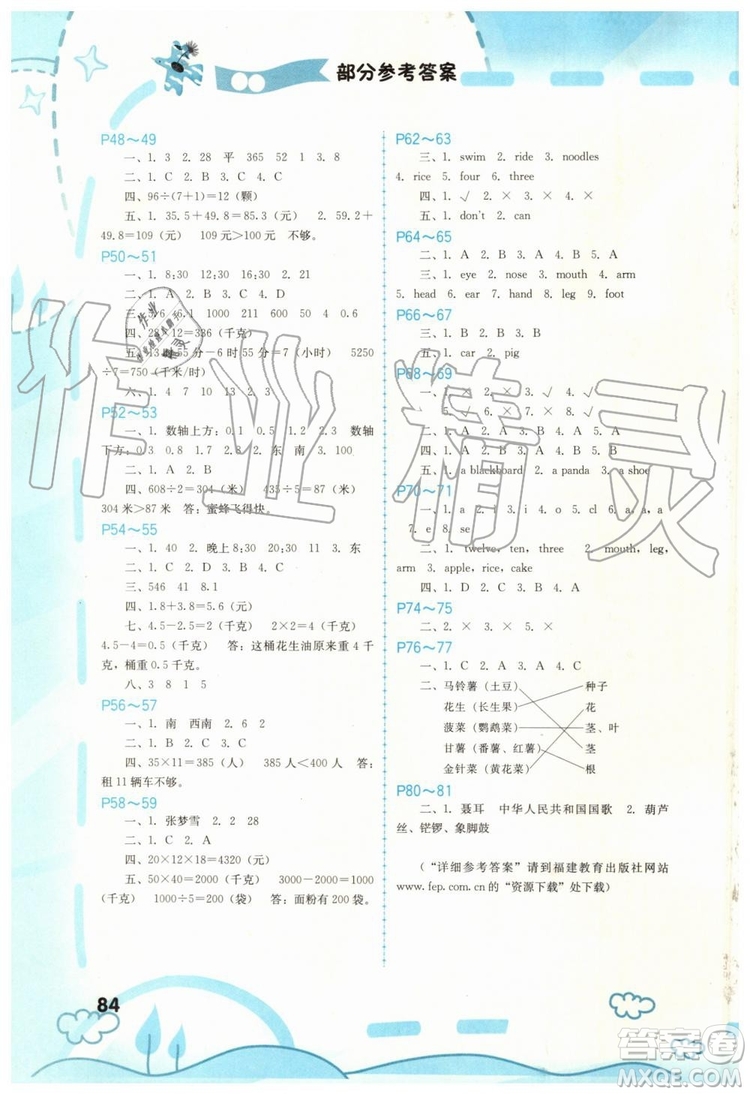 部分参考答案
P48～49
一、1. 3 2. 28 平 365 52 1 3. 8
二、1. B 2. A 3. C 4. D
四、96÷(7+1)=12（颗）
五、1. 35.5＋49.8＝85.3（元） 2. 59.2＋
49.8＝109（元） 109元＞100元 不够。
P50～51
一、1. 8:30 12:30 16:30 2. 4
二、1. A 2. B 3. C 4. D
6.1 1000 211 600 50 4 0.6
12＝336（千克）
55分－6时55分＝7（小时） 5250
÷7＝750（千米/时）
六、1 4 7 10 13 2. 3
P52～53
一、1. 数轴上方：0.1 0.5 1.2 2.3 数轴
下方：0.3 0.8 1.7 2. 东 南 3. 100
二、1. A 2. B
四、608÷2＝304（米） 435÷5＝87（米）
304米＞87米 答：蜜蜂飞得快。
P54～55
一、1. 40 2. 晚上8:30 20:30 3. 11 3. 东
三、546 41 8.1
四、1.8＋3.8＝5.6（元）
七、4.5－2.5＝2（千克） 2×2＝4（千克）
4.5－4＝0.5（千克） 答：这桶花生油原来重4千
克，桶重0.5千克。
八、3 8 1 5
P56～57
一、1. 南 西南 2. 6 2
二、1. A 2. B 3. C
四、35×11＝385（人） 385＜400 答：
租11辆车不够。
P58～59
一、1. 张梦雪 2. 2 8
二、1. C 2. A
四、20×12×18＝4320（元）
五、50×40＝2000（千克） 3000－2000＝1000
（千克） 1000÷5＝200（袋） 答：面粉有200袋。
P62～63
三、1. swim 2. ride 3. noodles
4. rice 5. four 6. three
四、1. √ 2. × 3. × 4. ×
五、1. don't 2. can
P64～65
一、1. A 2. B 3. A 4. A 5. B
三、1. eye 2. nose 3. mouth 4. arm
5. head 6. ear 7. hand 8. leg 9. foot
P66～67
一、1. B 2. B 3. A 4. A 5. A
五、1. two 2. car 2. pig
P68～69
一、1. × 2. × 3. √ 4. √
5. √ 6. × 7. × 8. √
二、1. A 2. B 3. A 4. A 5. B
五、1. a blackboard 2. a panda 3. a shoe
P70～71
一、1. a 2. l 3. i 4. o 5. cl 6. a
7. e 8. se
二、1. twelve, ten, three 2. mouth, leg,
arm 3. apple, rice, cake
四、1. D 2. C 3. B 4. A
P74～75
二、2. × 3. × 4. × 5. ×
P76～77
一、1. C 2. C 3. A 4. B 5. A
二、马铃薯（土豆） 种子
花生（长生果） 花
菠菜（鹦鹉菜） 茎、叶
甘薯（番薯、红薯） 茎
金针菜（黄花菜） 根
P80～81
二、1. 聂耳 中华人民共和国国歌 2. 葫芦
丝、铓锣、象脚鼓
（“详细参考答案”请到福建教育出版社网站
www.fep.com.cn的“资源下载”处下载）
84
作业精灵
答案圈
MXQE.COM